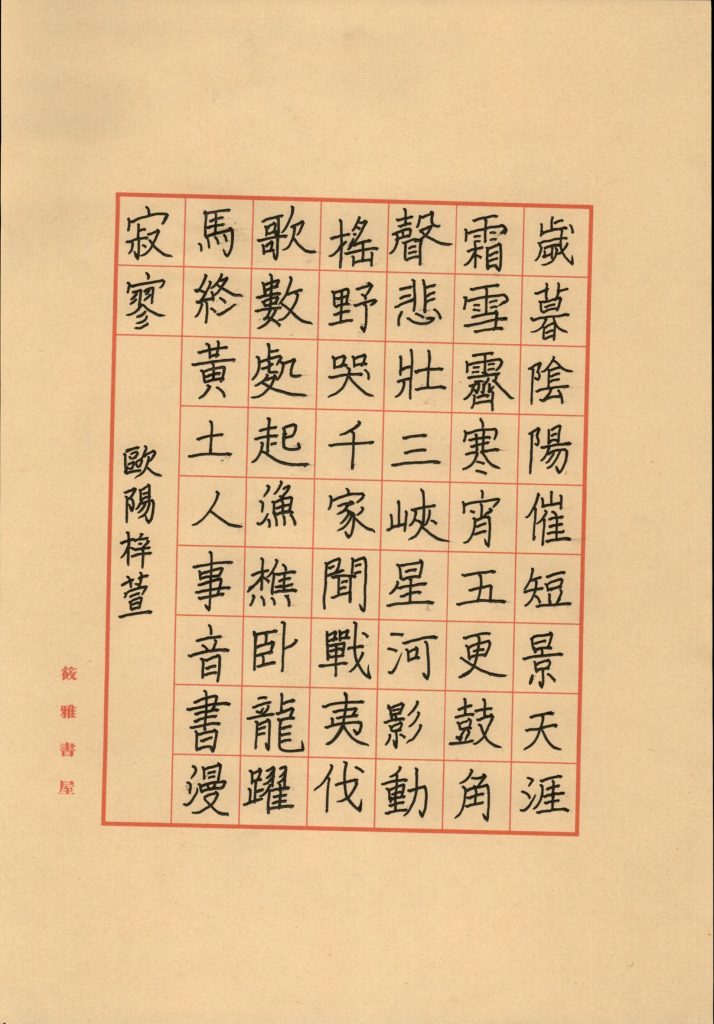 歲暮陰陽催短景天涯
霜雪霽寒宵五更鼓角
聲悲壯三峽星河影動
搖野哭千家聞戰夷伐
歌數處起漁樵卧龍躍
馬終黃土人事音書漫
寂寥
歐陽梓萱
筱雅書屋